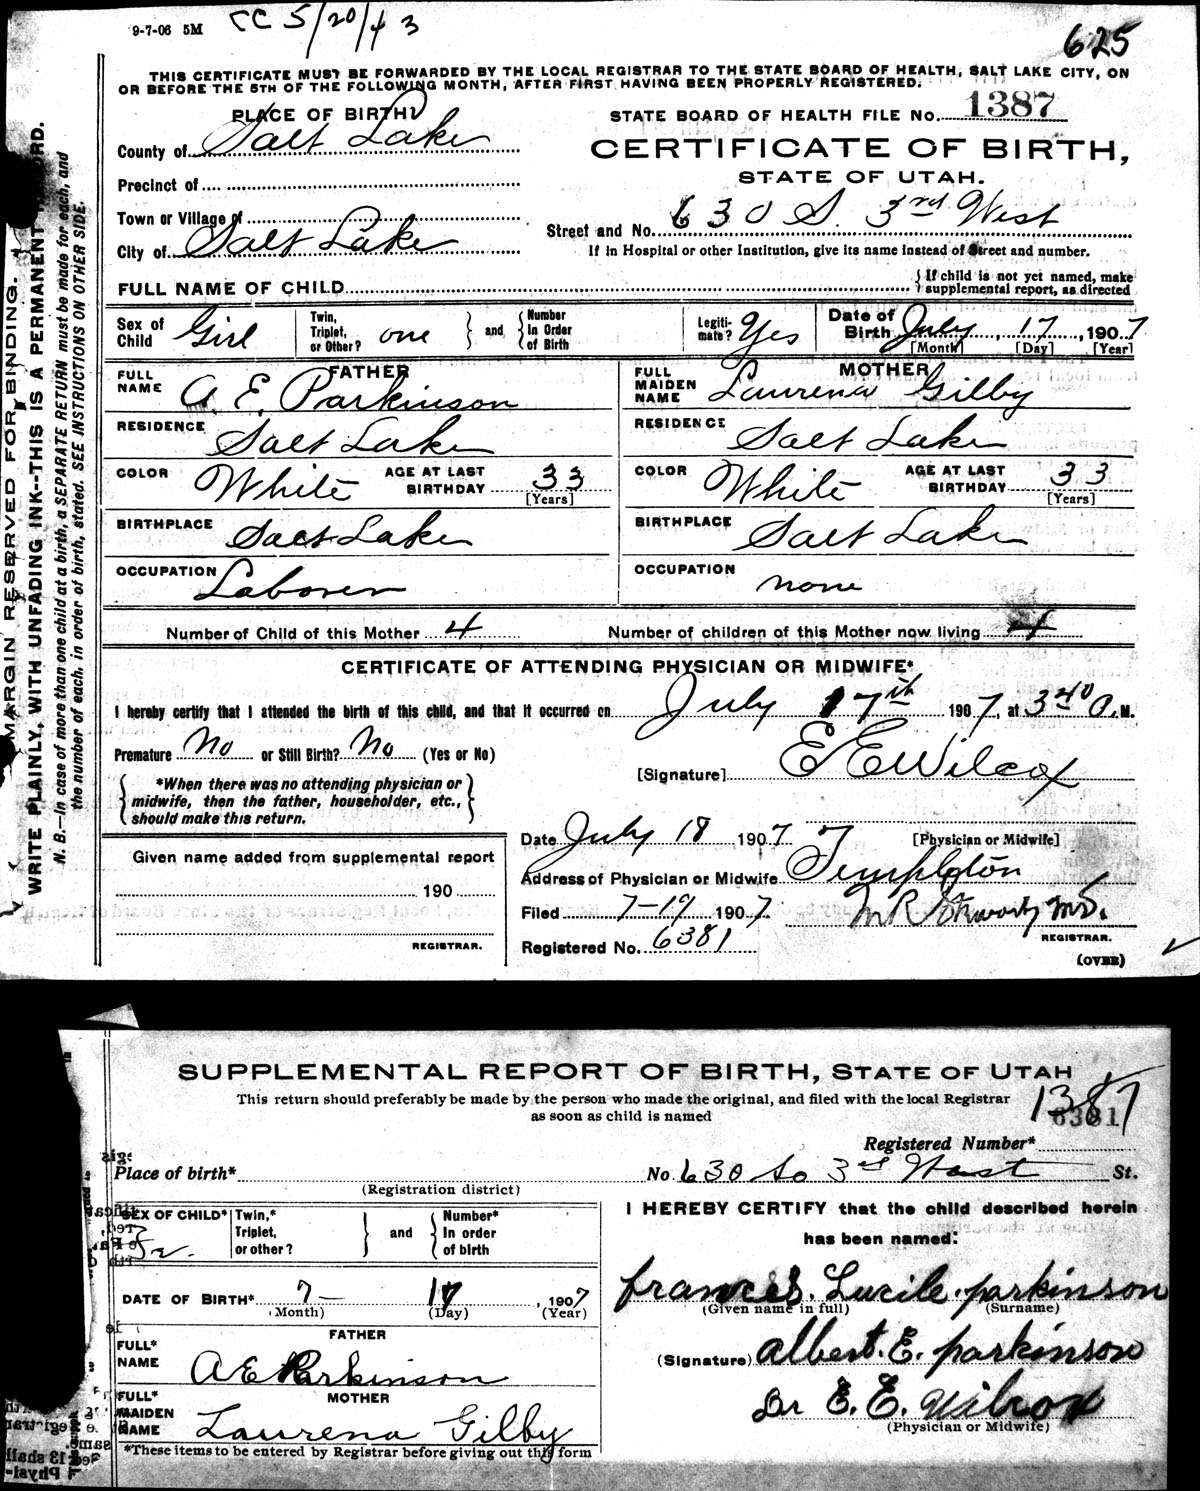 9-7-06 5M CC 5/20/43 625
THIS CERTIFICATE MUST BE FORWARDED BY THE LOCAL REGISTRAR TO THE STATE BOARD OF HEALTH, SALT LAKE CITY, ON
OR BEFORE THE 5TH OF THE FOLLOWING MONTH, AFTER FIRST HAVING BEEN PROPERLY REGISTERED.
PLACE OF BIRTH
STATE BOARD OF HEALTH FILE No. 1387
County of Salt Lake
CERTIFICATE OF BIRTH,
STATE OF UTAH.
Precinct of
Town or Village of
Street and No. 630 S. 3rd West
City of Salt Lake
If in Hospital or other Institution, give its name instead of Street and number.
FULL NAME OF CHILD
If child is not yet named, make
supplemental report, as directed
Sex of Child Girl Twin, Triplet, or Other? one and Number In Order of Birth Legiti-mate? Yes Date of Birth July 17, 1907
[Month] [Day] [Year]
FATHER
FULL NAME A. E. Parkinson
MOTHER
FULL MAIDEN NAME Laurena Gilby
RESIDENCE Salt Lake
RESIDENCE Salt Lake
COLOR White AGE AT LAST BIRTHDAY 33 [Years]
COLOR White AGE AT LAST BIRTHDAY 33 [Years]
BIRTHPLACE Salt Lake
BIRTHPLACE Salt Lake
OCCUPATION Laborer
OCCUPATION none
Number of Child of this Mother 4 Number of children of this Mother now living 4
CERTIFICATE OF ATTENDING PHYSICIAN OR MIDWIFE*
I hereby certify that I attended the birth of this child, and that it occurred on July 17th 1907, at 3 40 A. M.
Premature No or Still Birth? No (Yes or No)
[Signature] E E Wilcox
*When there was no attending physician or
midwife, then the father, householder, etc.,
should make this return.
[Physician or Midwife]
Date July 18 1907
Address of Physician or Midwife Templeton
Given name added from supplemental report
190
REGISTRAR.
Filed 7-19 1907
M R Stewart M.D.
REGISTRAR.
Registered No. 6381
(OVER)
MARGIN RESERVED FOR BINDING.
WRITE PLAINLY, WITH UNFADING INK--THIS IS A PERMANENT RECORD.
N. B.—In case of more than one child at a birth, a SEPARATE RETURN must be made for each, and
the number of each, in order of birth, stated. SEE INSTRUCTIONS ON OTHER SIDE.
SUPPLEMENTAL REPORT OF BIRTH, STATE OF UTAH
This return should preferably be made by the person who made the original, and filed with the local Registrar
as soon as child is named
1387
6381
Registered Number*
Place of birth*
(Registration district)
No. 630 So 3rd West St.
SEX OF CHILD* Fe. Twin,* Triplet, or other? and Number* In order of birth
I HEREBY CERTIFY that the child described herein
has been named:
DATE OF BIRTH* 7- 17, 1907
(Month) (Day) (Year)
Frances. Lucile. Parkinson
(Given name in full) (Surname)
FATHER
FULL* NAME A E Parkinson
(Signature) Albert. E. Parkinson
MOTHER
FULL* MAIDEN NAME Laurena Gilby
Dr E. E. Wilcox
(Physician or Midwife)
*These items to be entered by Registrar before giving out this form